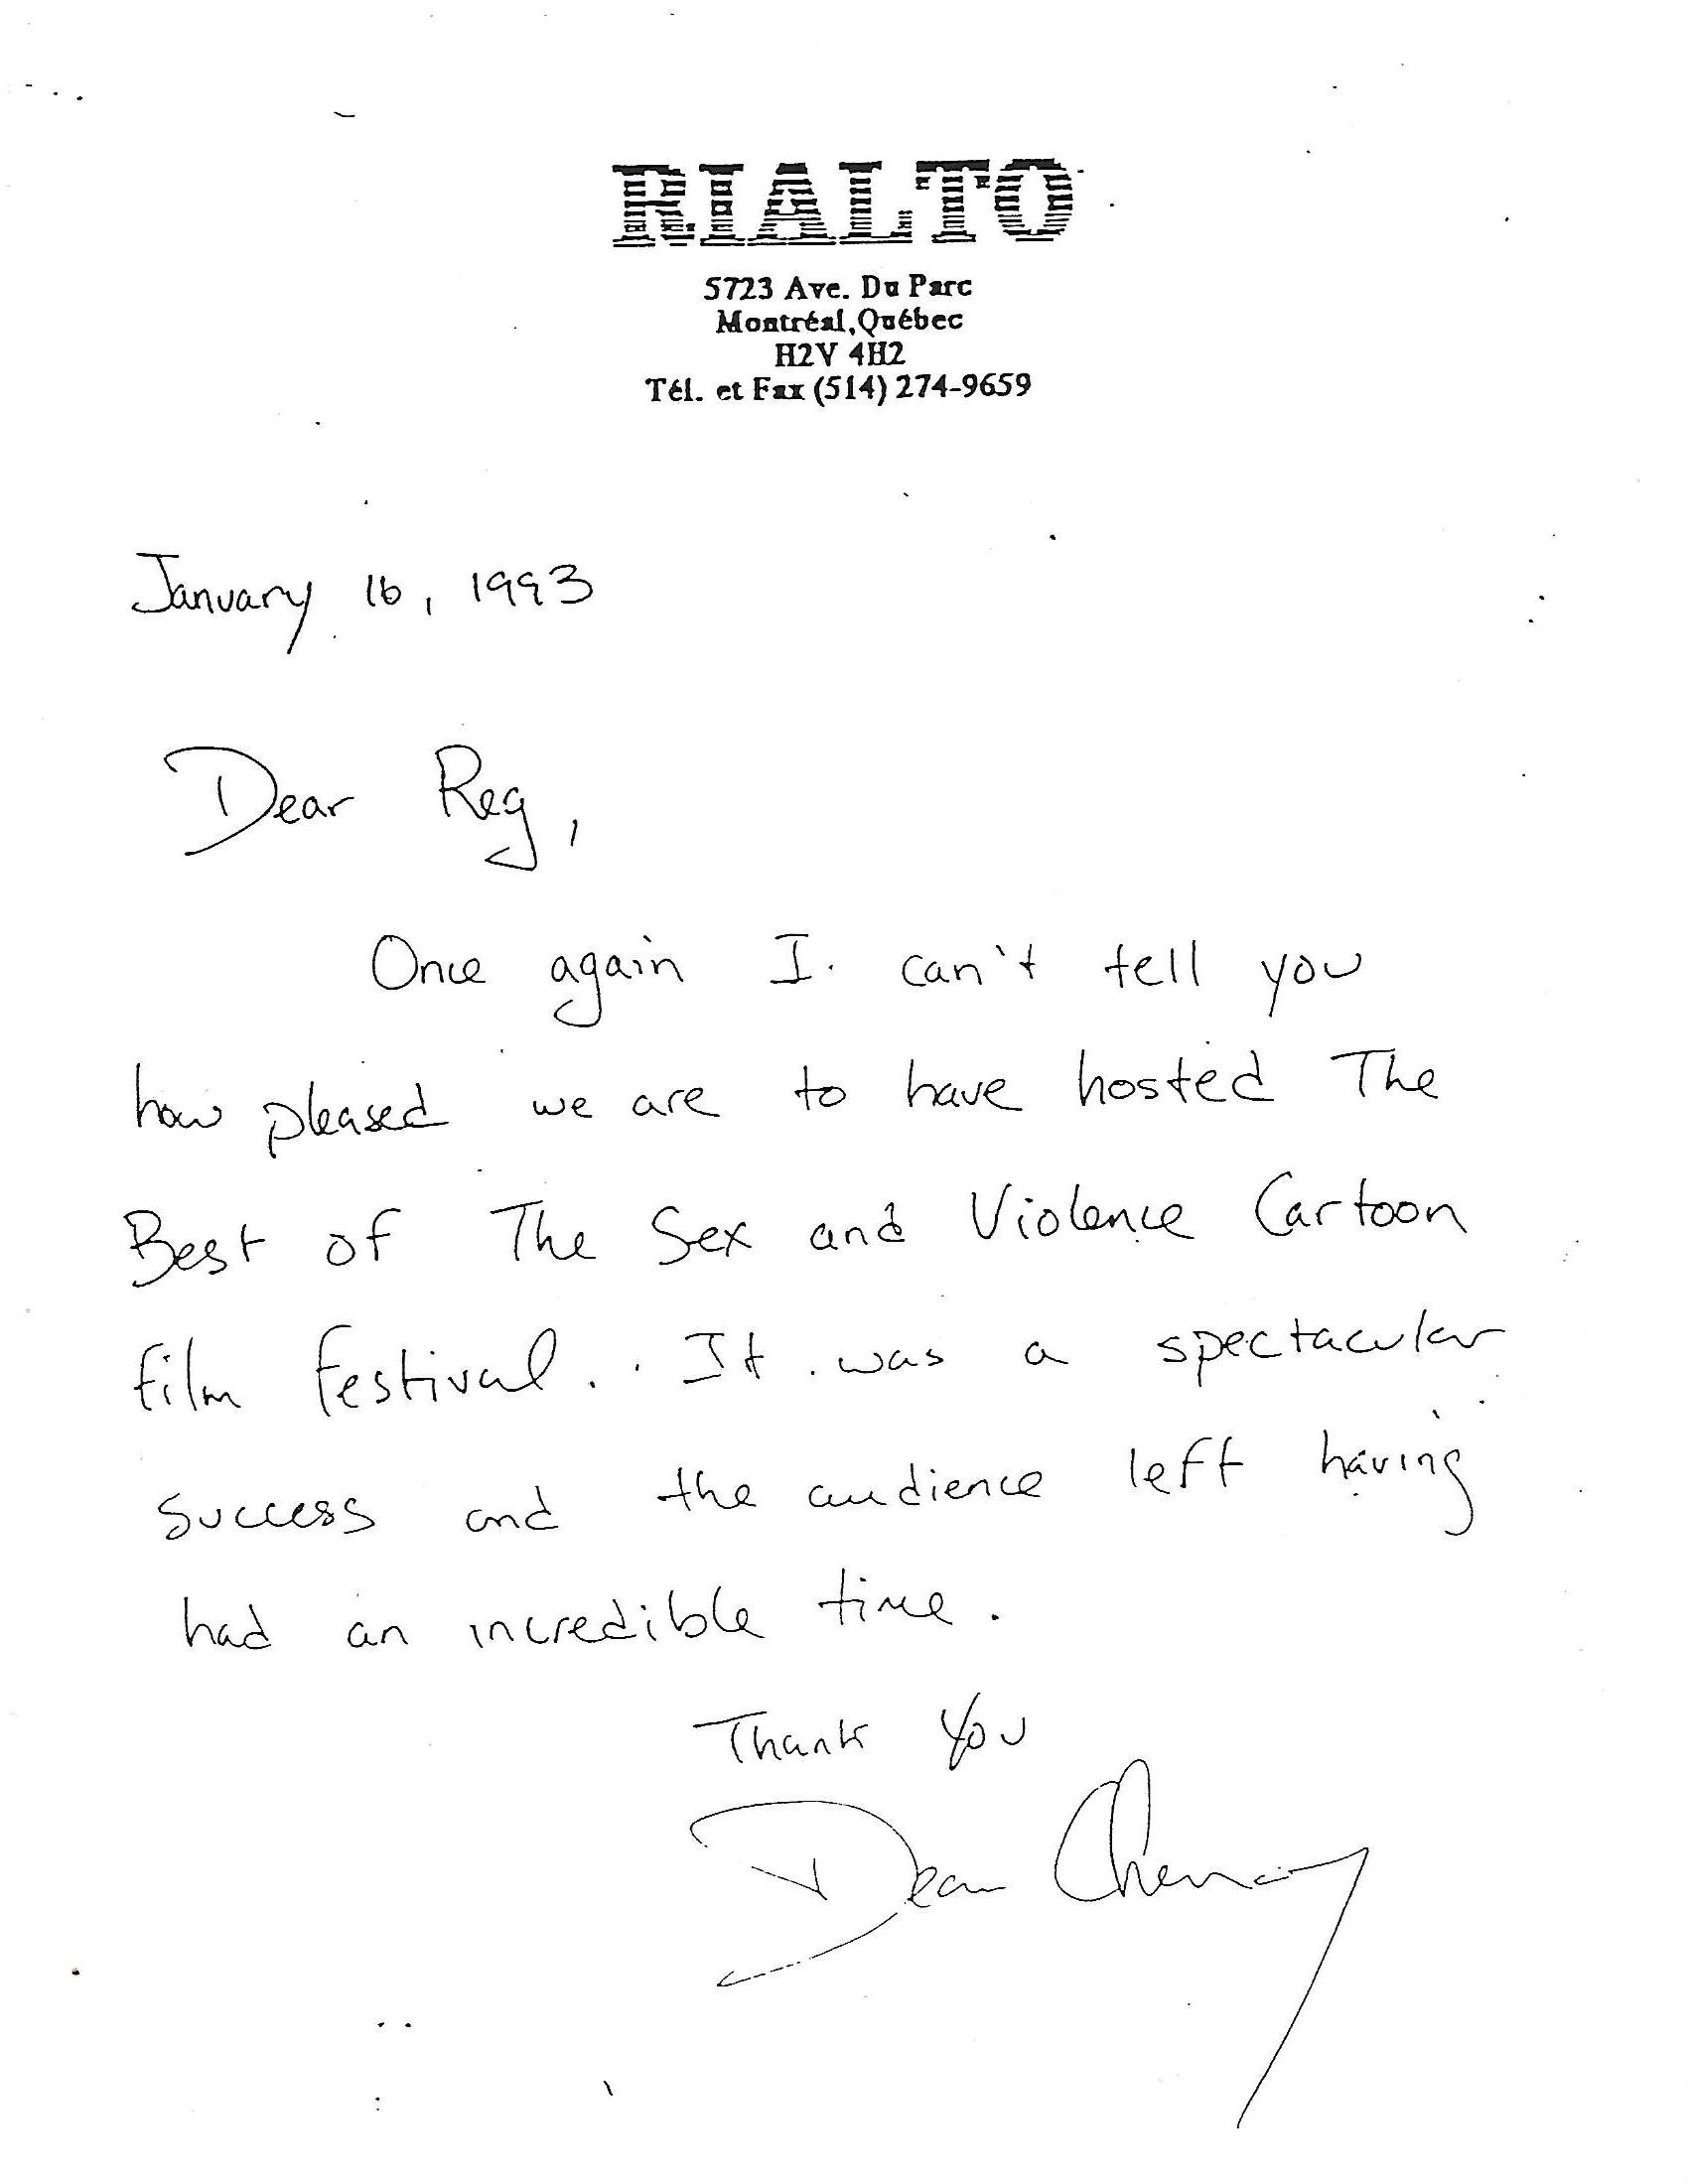 RIALTO
5723 Ave. Du Parc
Montréal, Québec
H2V 4H2
Tél. et Fax (514) 274-9659
January 16, 1993
Dear Reg,
Once again I can't tell you
how pleased we are to have hosted The
Best of The Sex and Violence Cartoon
film festival. It was a spectacular
success and the audience left having
had an incredible time.
Thank You
Dean